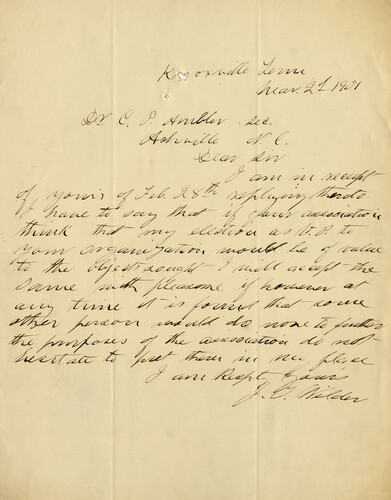 Knoxville Tenn
Mar. 2d 1901
Dr C. P. Ambler Sec.
Ashville N. C.
Dear Sir
I am in receipt
of yours of Feb. 28th replying thereto
I have to say that if your association
think that my election as V. P. to
your organization would be of value
to the object sought I will accept the
same with pleasure if however at
any time it is found that some
other person would do more to further
the purposes of the association do not
hesitate to put them in my place
I am Respty yours
J. T. Wilder